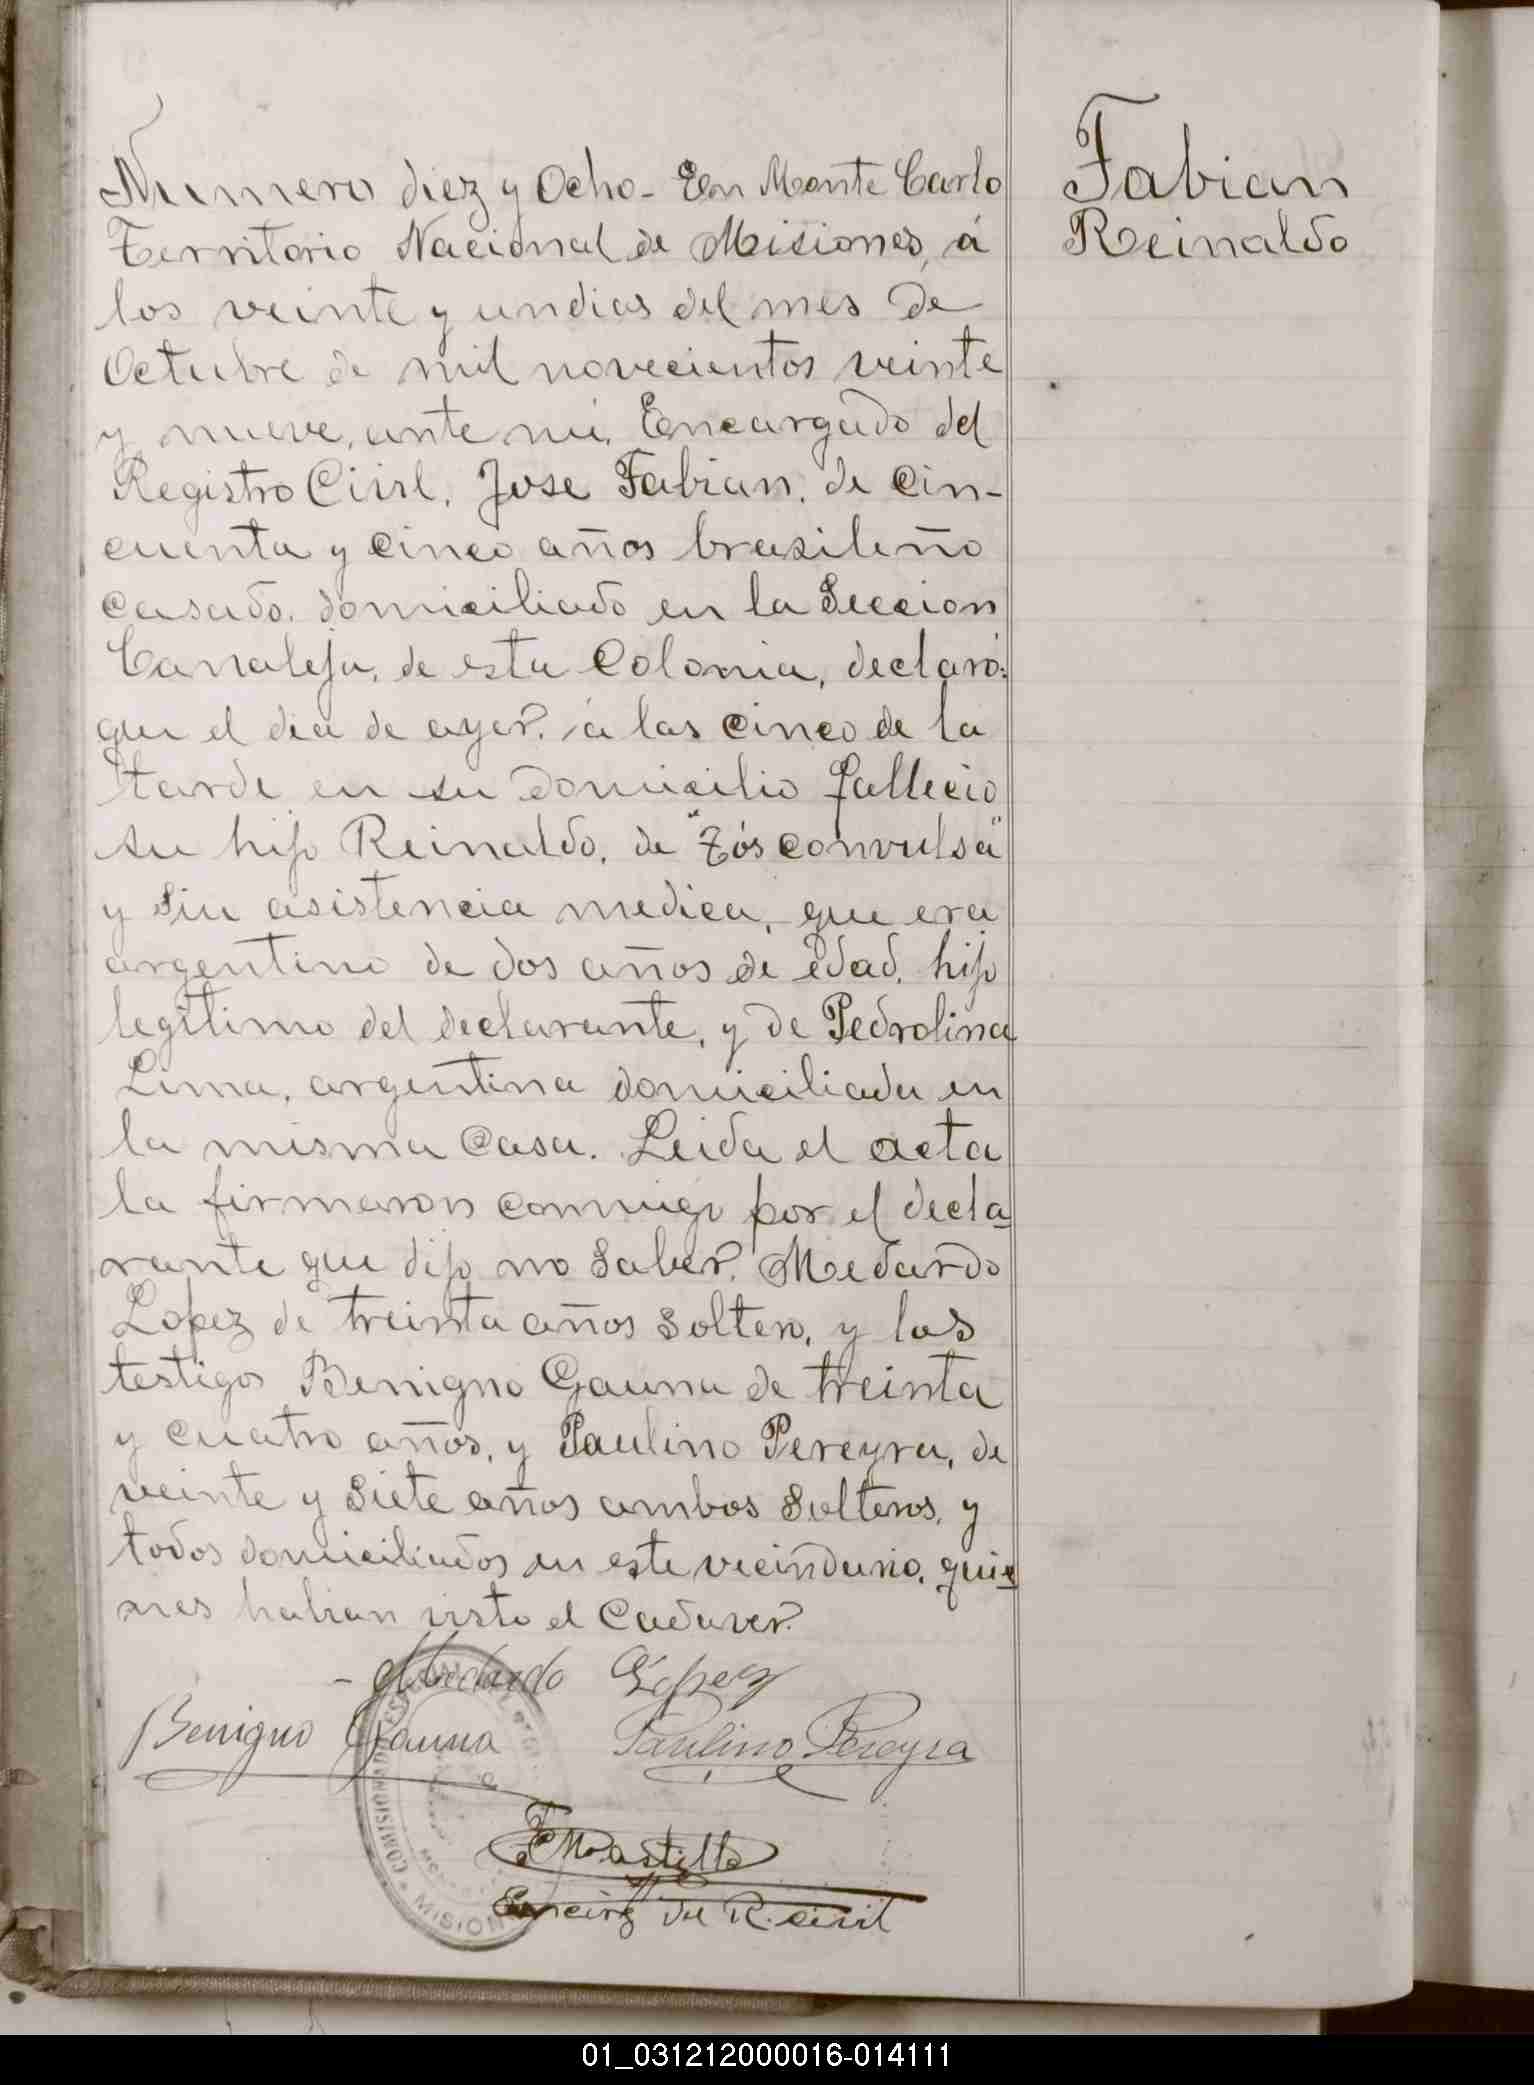 Numero diez y Ocho - En Monte Carlo
Territorio Nacional de Misiones, á
los veinte y un dias del mes de
Octubre de mil novecientos veinte
y nueve, ante mi, Encargado del
Registro Civil, Jose Fabian, de cin-
cuenta y cinco años brasileño
casado, domiciliado en la Seccion
Canaleja, de esta Colonia, declaró:
que el dia de ayer, á las cinco de la
tarde en su domicilio fallecio
su hijo Reinaldo, de "Tós convulsa"
y sin asistencia medica, que era
argentino de dos años de edad, hijo
legitimo del declarante, y de Pedrolina
Lima, argentina domiciliada en
la misma casa. Leida el acta
la firmaron conmigo por el decla
rante que dijo no saber, Medardo
Lopez de treinta años soltero, y los
testigos Benigno Gauna de treinta
y cuatro años, y Paulino Pereyra, de
veinte y siete años ambos solteros, y
todos domiciliados en este vecindario, quie
nes habian visto el cadaver.
- Medardo Lopez
Benigno Gauna Paulino Pereyra
Encarg del R. civil
Fabian
Reinaldo
COMISIONADO ESC
MISION
01_031212000016-014111